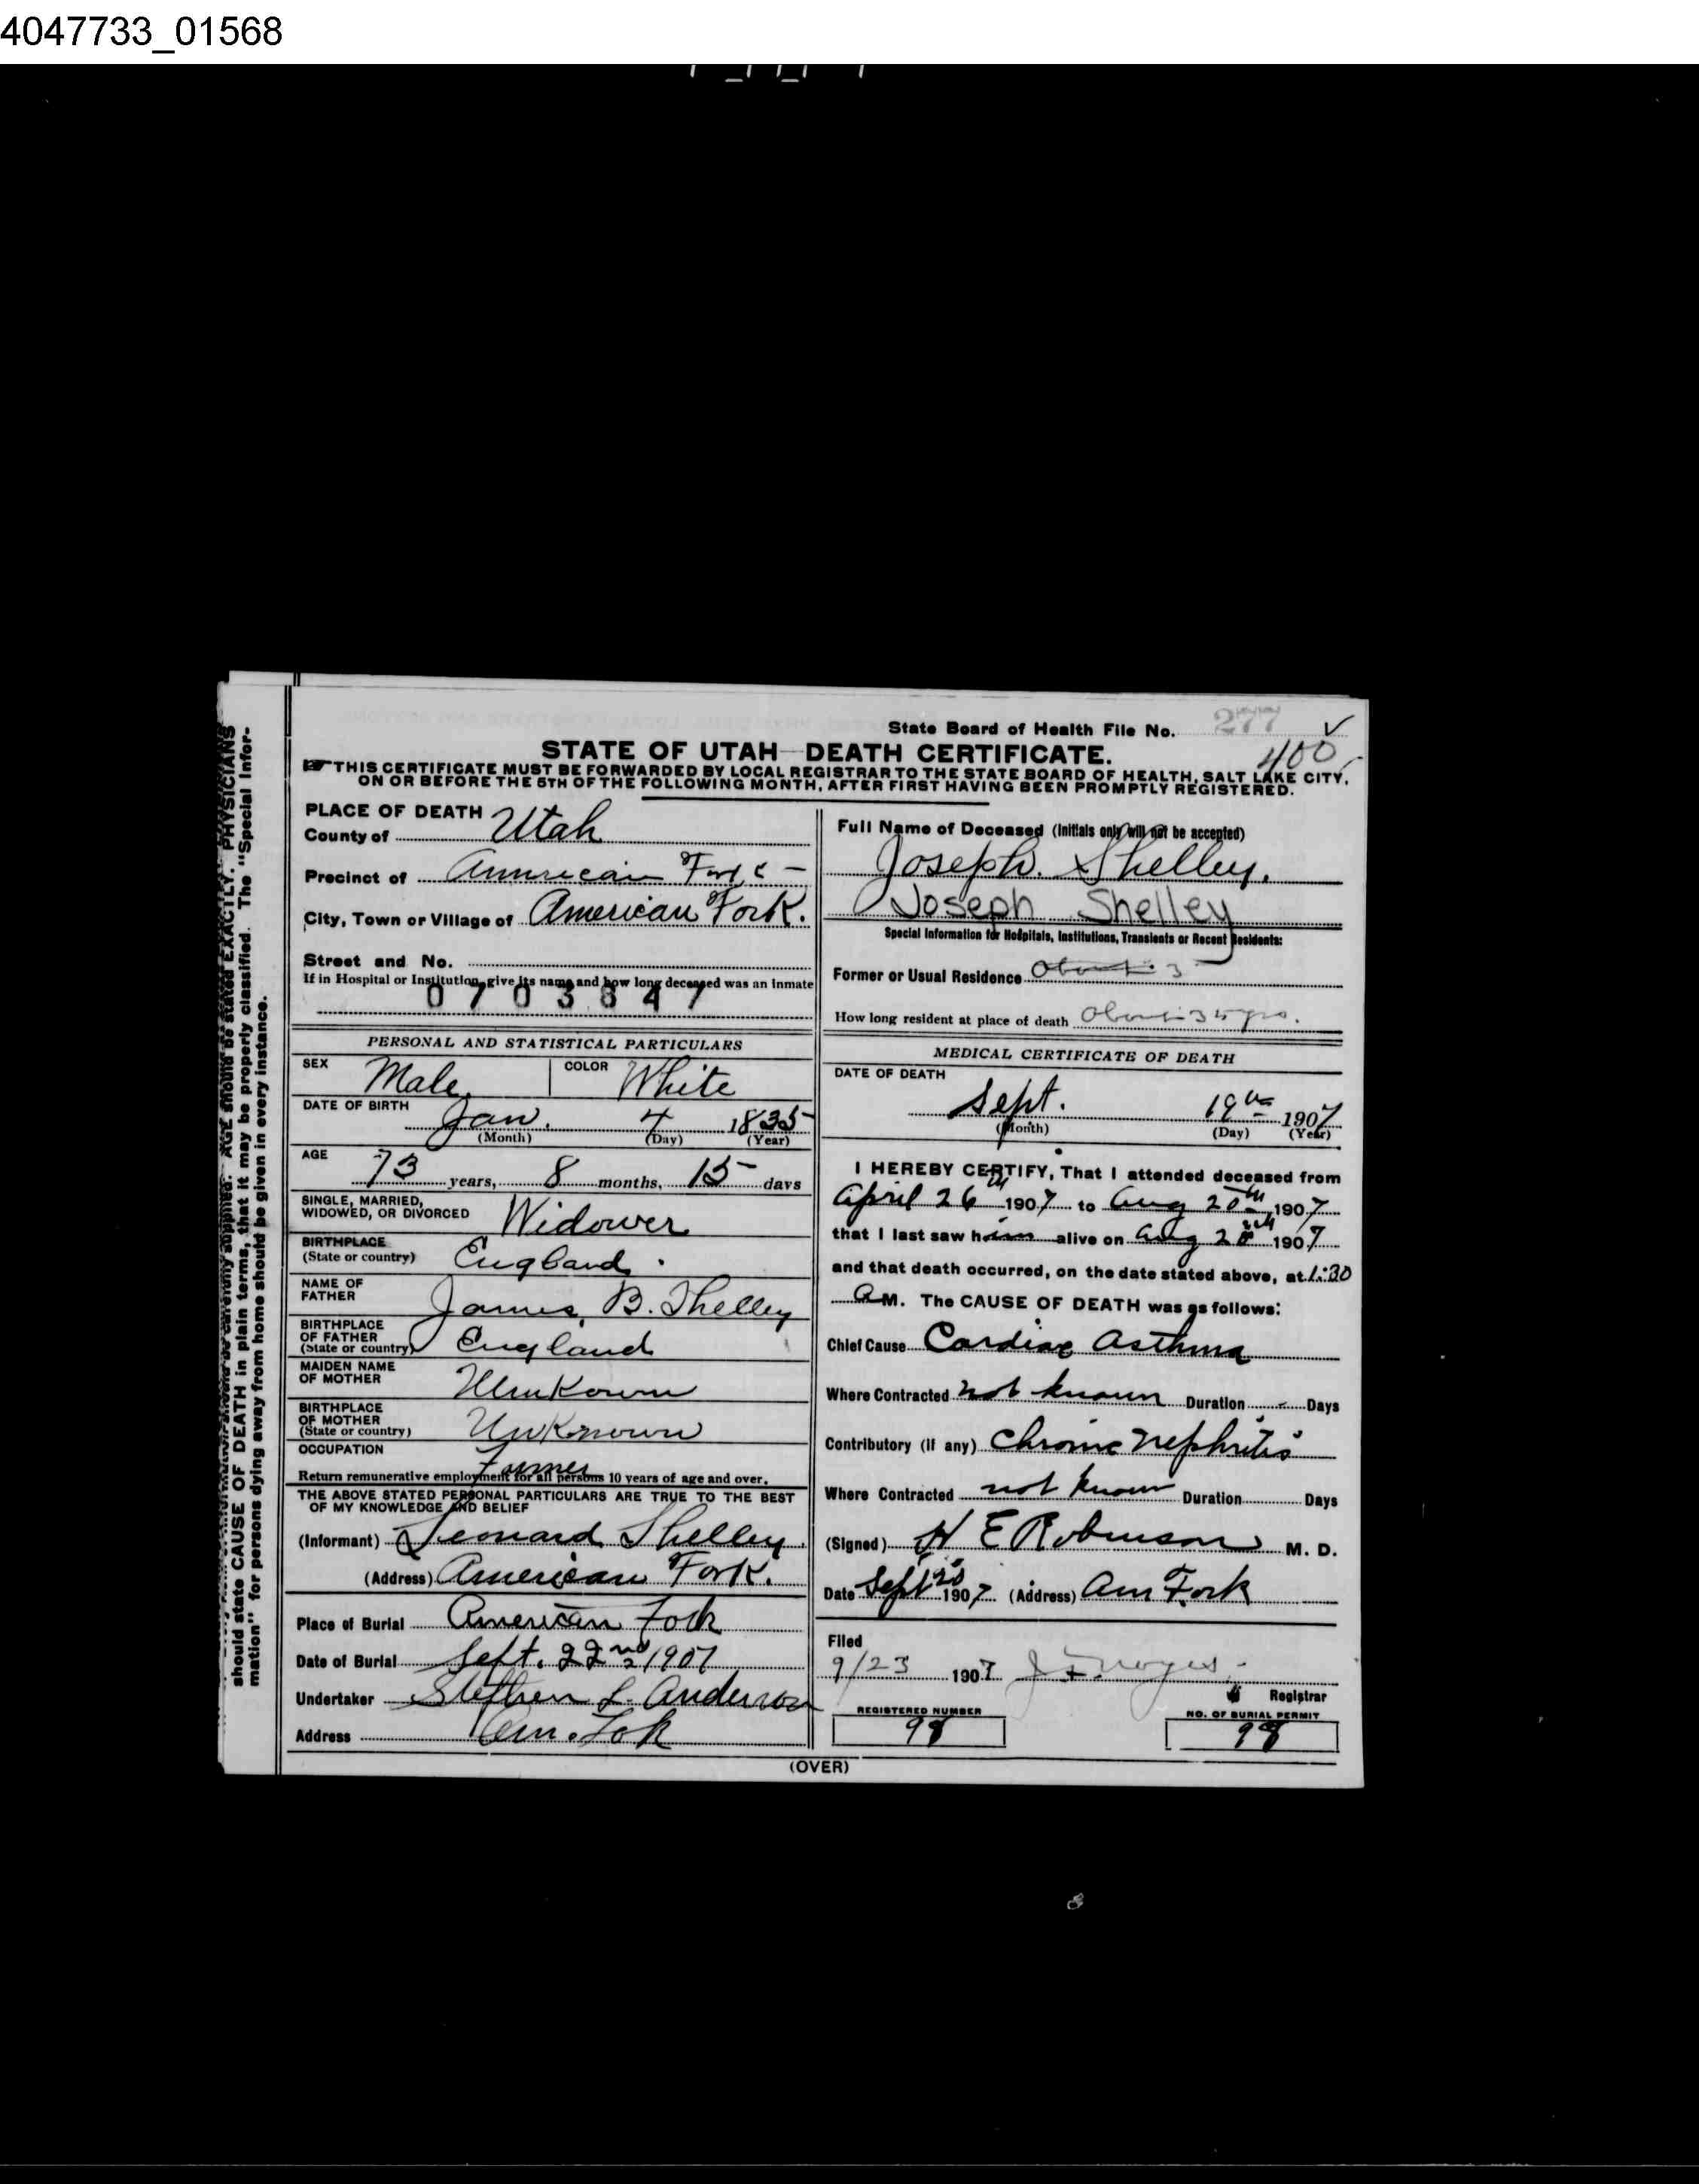 4047733_01568
should state CAUSE OF DEATH in plain terms, that it may be properly classified. The "Special Infor-
mation" for persons dying away from home should be given in every instance.
State Board of Health File No. 277
400
STATE OF UTAH—DEATH CERTIFICATE.
THIS CERTIFICATE MUST BE FORWARDED BY LOCAL REGISTRAR TO THE STATE BOARD OF HEALTH, SALT LAKE CITY,
ON OR BEFORE THE 5TH OF THE FOLLOWING MONTH, AFTER FIRST HAVING BEEN PROMPTLY REGISTERED.
PLACE OF DEATH
County of Utah
Precinct of American Fork
City, Town or Village of American Fork.
Street and No.
If in Hospital or Institution, give its name and how long deceased was an inmate
0703647
PERSONAL AND STATISTICAL PARTICULARS
SEX Male COLOR White
DATE OF BIRTH Jan. 4 1835
(Month) (Day) (Year)
AGE 73 years, 8 months, 15 days
SINGLE, MARRIED,
WIDOWED, OR DIVORCED Widower
BIRTHPLACE
(State or country) England.
NAME OF
FATHER James, B. Shelley
BIRTHPLACE
OF FATHER
(State or country) England
MAIDEN NAME
OF MOTHER Unkown
BIRTHPLACE
OF MOTHER
(State or country) Unknown
OCCUPATION
Farmer
Return remunerative employment for all persons 10 years of age and over.
THE ABOVE STATED PERSONAL PARTICULARS ARE TRUE TO THE BEST
OF MY KNOWLEDGE AND BELIEF
(Informant) Leonard Shelley
(Address) American Fork.
Place of Burial American Fork
Date of Burial Sept. 22nd 1907
Undertaker Stephen L. Anderson
Address Am. Fok
Full Name of Deceased (Initials only will not be accepted)
Joseph. Shelley.
Joseph Shelley
Special Information for Hospitals, Institutions, Transients or Recent Residents:
Former or Usual Residence About 3
How long resident at place of death About 35 yrs.
MEDICAL CERTIFICATE OF DEATH
DATE OF DEATH
Sept. 19th 1907
(Month) (Day) (Year)
I HEREBY CERTIFY, That I attended deceased from
April 26th 1907 to Aug 20th 1907
that I last saw him alive on Aug 20th 1907
and that death occurred, on the date stated above, at 1:30
A M. The CAUSE OF DEATH was as follows:
Chief Cause Cardiac Asthma
Where Contracted not known Duration Days
Contributory (if any) Chronic Nephritis
Where Contracted not known Duration Days
(Signed) H E Robinson M. D.
Date Sept 20 1907 (Address) Am Fork
Filed
9/23 1907
Registrar
REGISTERED NUMBER NO. OF BURIAL PERMIT
98 98
(OVER)